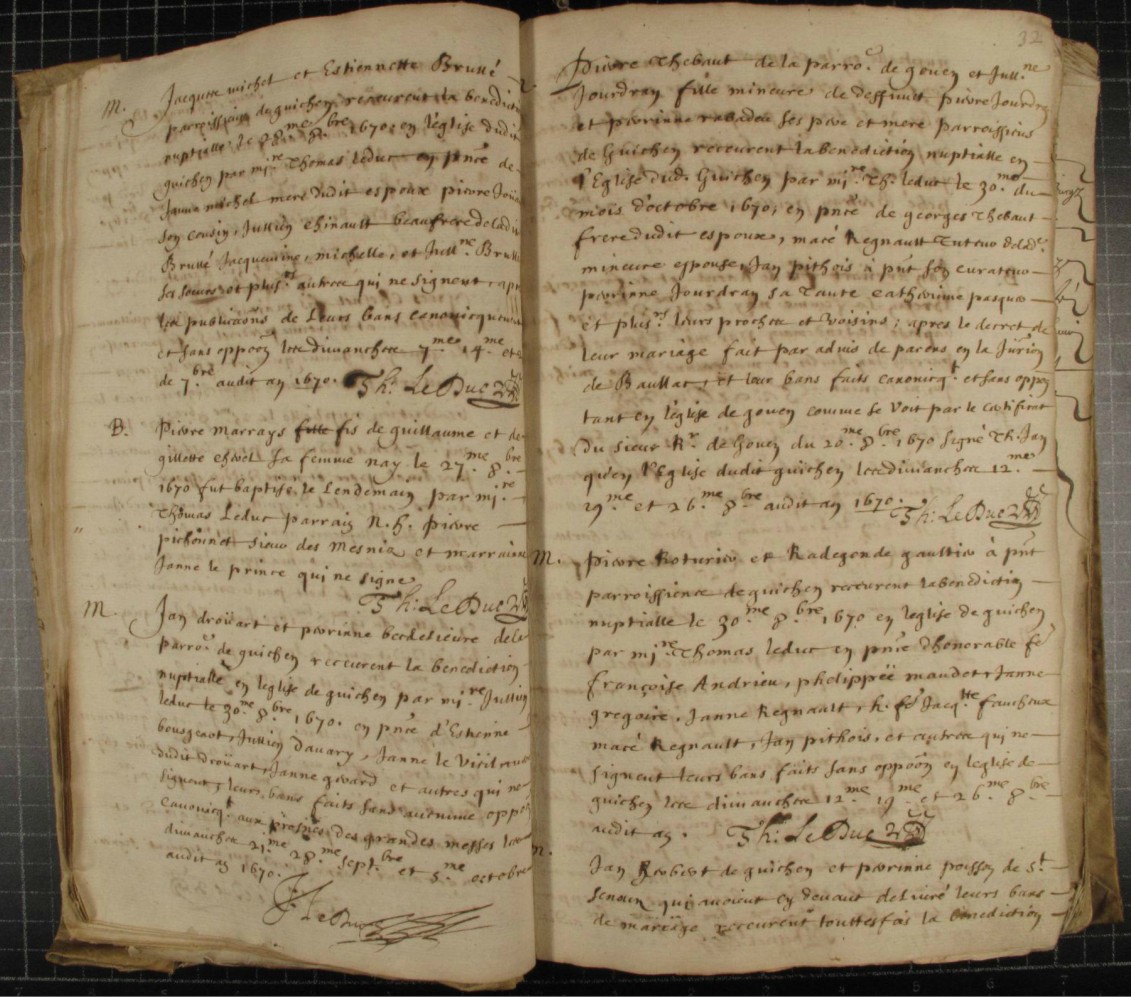 M. Jacques michel et Estiennette Brullé
parroissiens de guichen, receurent la benedicti
nuptialle le 28.me 8.bre 1670. en l'église dudit
guichen par mi.re Thomas leduc en pnce de
Janne michel mere dudit espoux pierre
son cousin, Jullien chinault beaufrere deladi
Brullé Jacquemine, michelle, et Jull.ne Brull
ses soeurs et plus.rs autres qui ne signent, apr
les publicaons de Leurs bans canonicquement
et sans oppoon les dimanches 7.me 14.me et
de 7.bre audit an 1670. Th: Le Duc
B. Pierre marrays fille fis de guillaume et de
gillette chevel sa femme nay le 27.me 8.bre
1670 fut baptisé le Lendemain par mi.re
Thomas Leduc parrain N. h. pierre
pichonnet sieur des mesnia et marrainne
Janne le prince qui ne signe
Th: Le Duc
M. Jan droüart et perrinne bechelieure de la
parro.e de guichen receurent la benediction
nuptialle en leglise de guichen par mi.re Jullien
leduc le 30.me 8.bre 1670. en pnce d'Estienne
bougeart, Jullien davary, Janne le Vieil
dudit droüart, Janne gerard et autres qui ne
signent, leurs bans faits sans aucunne oppo
canonicq.t aux prosnes des grandes messes les
dimanches 21.me 28.me sept.bre et 5.me octobre
audit an 1670.
J. LeDuc
32
Pierre Thebaut de la parro.e de goven et Jull.ne
Jourdran fille mineure de deffunct pierre Jourdra
et perrinne rabadeu ses pere et mere parroissiens
de Guichen receurent la benediction nuptialle en
l'Eglise dud. Guichen par mi.re Th. leduc le 30.me du
mois d'octobre 1670, en pnce de georges Thebaut
frere dudit espoux, macé Regnault Tuteur de lad.e
mineure espouse, Jan pithois à pnt son curateur
perrinne Jourdran sa Tante catherinne pasque
et plus.rs leurs proches et voisins; apres le decret de
leur mariage fait par advis de parens en la Jurion
de Baullac, et leur bans faits canonicq.t et sans oppo
tant en l'église de goven comme se voit par le certificat
du sieur R.r de Goven du 26.me 8.bre 1670 signé Th. Jan
qu'en l'Eglise dudit guichen les dimanches 12.me
19.me et 26.me 8.bre audit an 1670. Th: Le Duc
M. Pierre Roturier et Radegonde gaultier à pnt
parroissiens de guichen receurent la benediction
nuptialle le 30.me 8.bre 1670 en leglise de guichen
par mi.re Thomas leduc en pnce d'honorable fe
françoise Andrieu, phelippëe maudet, Janne
gregoire, Janne Regnault, h. fe Jacq.tte faucheux
macé Regnault, Jan pithois, et autres qui ne
signent leurs bans faits sans oppoon en leglise de
guichen les dimanches 12.me 19.me et 26.me 8.bre
audit an. Th: Le Duc
M. Jan Robert de guichen et perrinne poisson de S.t
Senoux qui avoient cy devant delivré leurs bans
de mariage receurent touttesfois la benediction